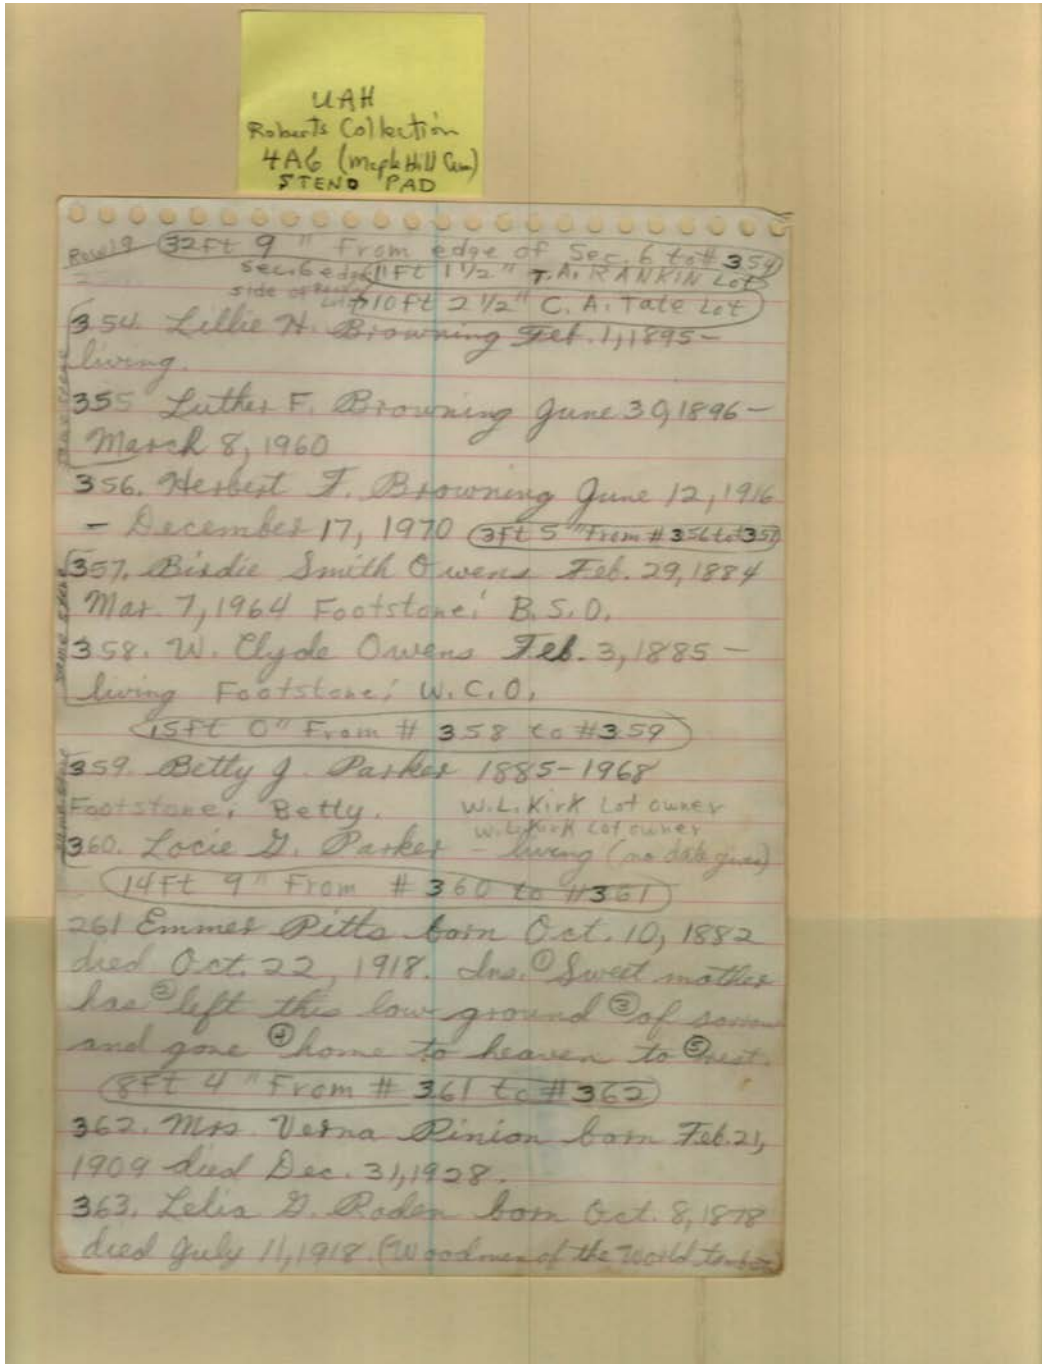 UAH
Roberts Collection
4A6 (Maple Hill Cem)
STENO PAD
Row 19 32 Ft 9 " From edge of Sec. 6 to # 354
Sec. 6 edge 11 Ft 1 1/2" T. A. RANKIN Lot
side of Rankin Lot 10 ft 2 1/2" C. A. Tate Lot
354. Lillie H. Browning Feb. 1, 1895 –
living.
same stone
355 Luther F. Browning June 30, 1896 –
March 8, 1960
356. Herbert F. Browning June 12, 1916
– December 17, 1970 3 Ft 5 " From # 356 to 357
357. Birdie Smith Owens Feb. 29, 1884
Mar. 7, 1964 Footstone: B. S. O.
same stone
358. W. Clyde Owens Feb. 3, 1885 –
living Footstone: W. C. O.
15 Ft 0" From # 358 to #359
359. Betty J. Parker 1885-1968
Footstone: Betty. W. L. Kirk Lot owner
same stone
W. L. Kirk Lot owner
360. Locie G. Parker – living (no date given)
14 Ft 9 " From # 360 to #361
261 Emmer Pitts born Oct. 10, 1882
died Oct. 22, 1918. Ins. ① Sweet mother
has ② left this low ground ③ of sorrow
and gone ④ home to heaven to ⑤ rest.
8 Ft 4 " From # 361 to # 362
362. Mrs. Verna Pinion born Feb. 21,
1909 died Dec. 31, 1928.
363. Lelia G. Roden born Oct. 8, 1878
died July 11, 1918. (Woodmen of the World